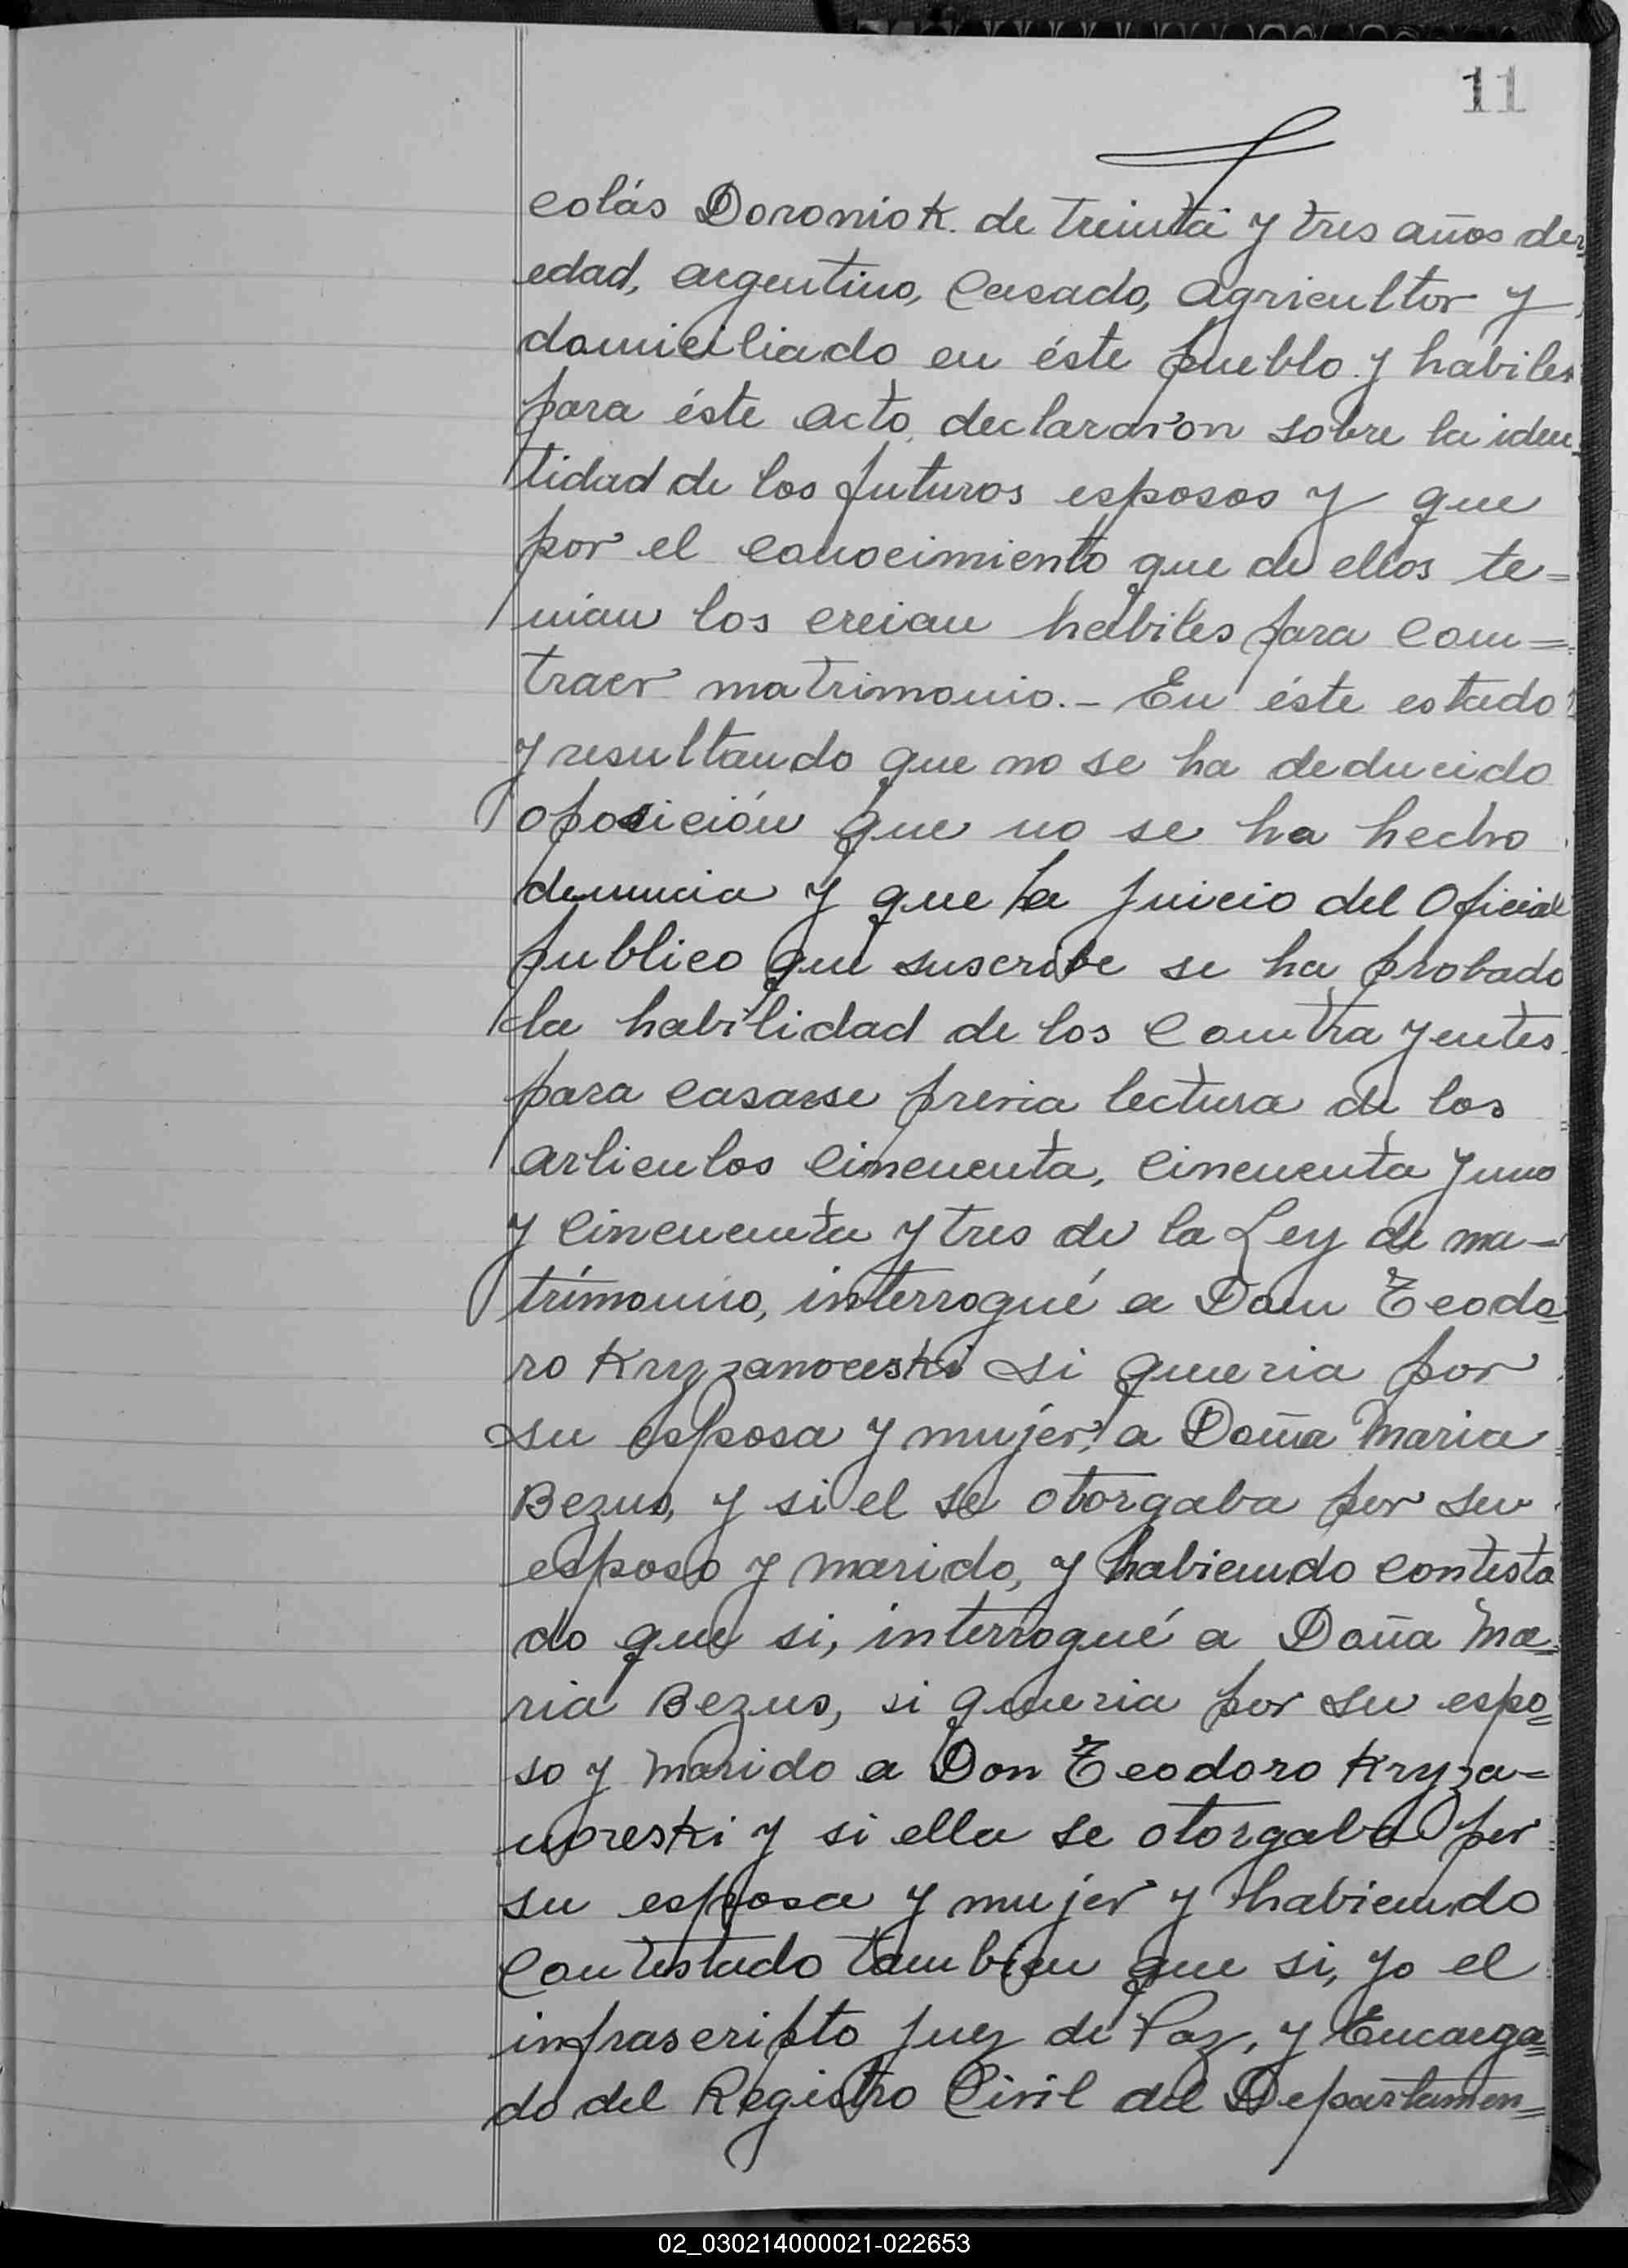 11
colás Doroniok. de treinta y tres años de
edad, argentino, casado, agricultor y
domiciliado en éste pueblo y habiles
para éste acto, declararon sobre la iden
tidad de los futuros esposos y que
por el conocimiento que de ellos te=
nian los creian habiles para con=
traer matrimonio.- En éste estado
y resultando que no se ha deducido
oposición que no se ha hecho
denuncia y que a juicio del Oficial
publico que suscribe se ha probado
la habilidad de los contrayentes
para casarse previa lectura de los
articulos cincuenta, cincuenta y uno
y cincuenta y tres de la Ley de ma-
trimonio, interrogué a Don Teodo
ro Kryzanoweski si queria por
su esposa y mujer a Doña Maria
Bezus, y si el se otorgaba por su
esposo y marido, y habiendo contesta
do que si, interrogué a Doña Ma=
ria Bezus, si queria por su espo=
so y marido a Don Teodoro Kryza=
noreski y si ella se otorgaba por
su esposa y mujer y habiendo
contestado tambien que si, yo el
infrascripto Juez de Paz, y Encarga=
do del Registro Civil del Departamen=
02_030214000021-022653